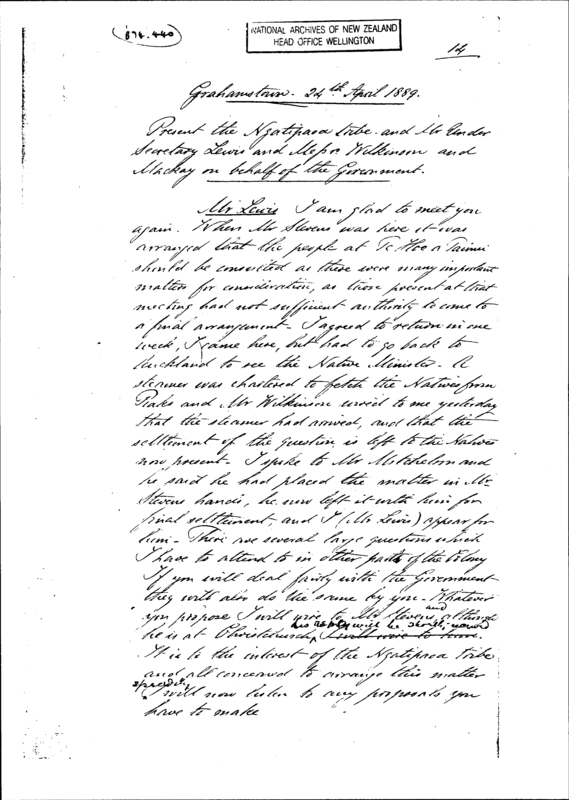 (874.440)
NATIONAL ARCHIVES OF NEW ZEALAND
HEAD OFFICE WELLINGTON
14
Grahamstown. 24th April 1889.
Present the Ngatipaoa tribe. and Mr Under
Secretary Lewis and Messrs Wilkinson and
Mackay on behalf of the Government.
Mr Lewis I am glad to meet you
again. When Mr Stevens was here it was
arranged that the people at Te Hoe o Tainui
should be consulted as there were many important
matters for consideration, as those present at that
meeting had not sufficient authority to come to
a final arrangement. I agreed to return in one
week, I came here, but had to go back to
Auckland to see the Native Minister. A
steamer was chartered to fetch the Natives from
Piako and Mr Wilkinson wired to me yesterday
that the steamer had arrived, and that the
settlement of the question is left to the Natives
now present. I spoke to Mr Mitchelson and
he said he had placed the matter in Mr
Stevens hands, he now left it with him for
final settlement, and I (Mr Lewis) appear for
him. There are several large questions which
I have to attend to in other parts of the Colony
If you will deal fairly with the Government
they will also do the same by you. Whatever
you propose I will wire to Mr Stevens, and although
he is at Christchurch, his reply will be I will wire to him.
It is to the interest of the Ngatipaoa tribe
and all concerned to arrange this matter
speedily I will now listen to any proposals you
have to make